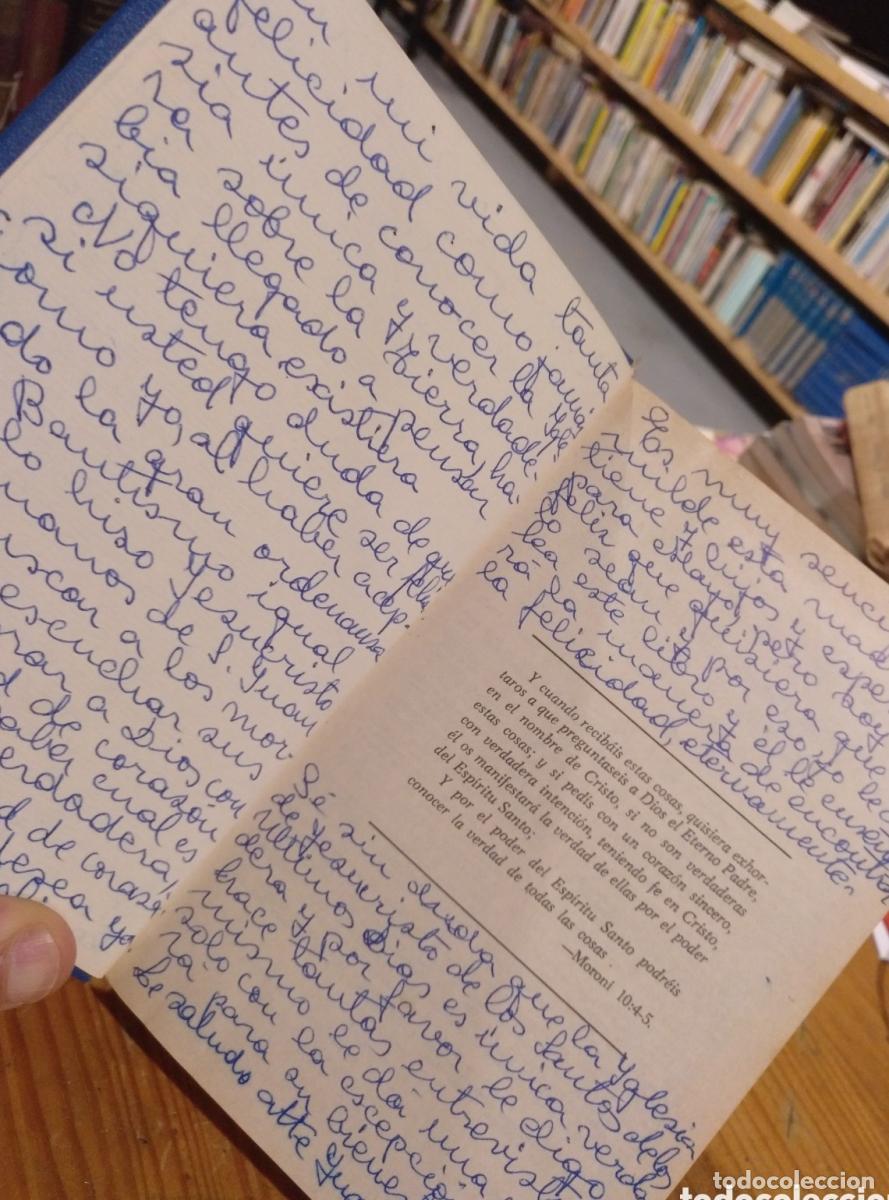 mi vida tanta
felicidad como jamás
antes de conocer la Ygle
sia única y verdade-
ra sobre la Tierra, ha
bía llegado a pensar
siquiera existiera
No tengo duda de que
si usted quiere ser feliz
como yo, al haber adop-
do la gran ordenansa
Bautismo igual
lo hiso Jesucristo
manos de S. Juan
escuchar a los mor-
sus
a Dios con
de corazón
saber cual es
verdadera,
d de coraz
desea ya
Es muy senci
milde esta mad
tiene hijos y espe
y Mayo, pero hoy
para que quisiera que
feliz y por eso, yo le
lo sean y él le enseña
lea este libro
rá la manera de encontra
la felicidad, eternamente.
Y cuando recibáis estas cosas, quisiera exhor-
taros a que preguntaseis a Dios el Eterno Padre,
en el nombre de Cristo, si no son verdaderas
estas cosas; y si pedís con un corazón sincero,
con verdadera intención, teniendo fe en Cristo,
él os manifestará la verdad de ellas por el poder
del Espíritu Santo;
Y por el poder del Espíritu Santo podréis
conocer la verdad de todas las cosas.
—Moroni 10:4-5.
Sé sin duda que la Yglesia
de Jesucristo de los Santos de los
Ultimos Dias es única verda
dera y por favor le digo
hace tantas entrevist
mismo le da una
solo con la escepció
rá para su biene
Le saluda atte Jua
todocoleccion